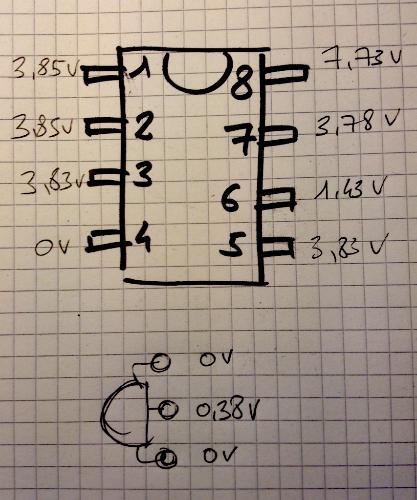 3,85V 1 8 7,73V
3,85V 2 7 3,78V
3,83V 3 6 1,43V
0V 4 5 3,83V
0V
0,38V
0V